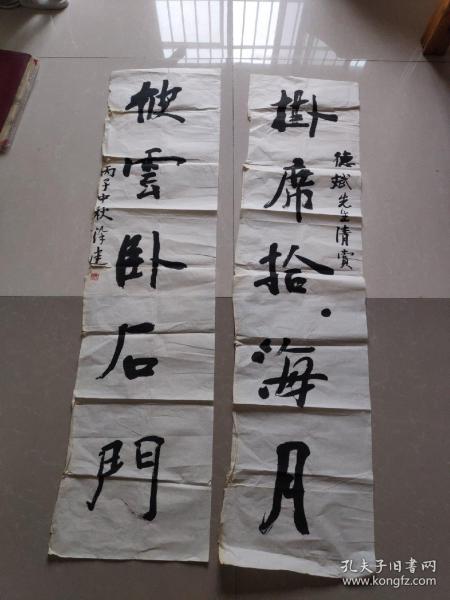 掛席拾海月
德斌先生清賞
披雲卧石門
丙子中秋
孔夫子旧书网
www.kongfz.com